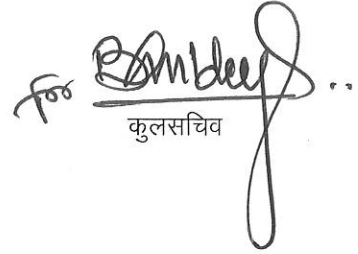 for
कुलसचिव